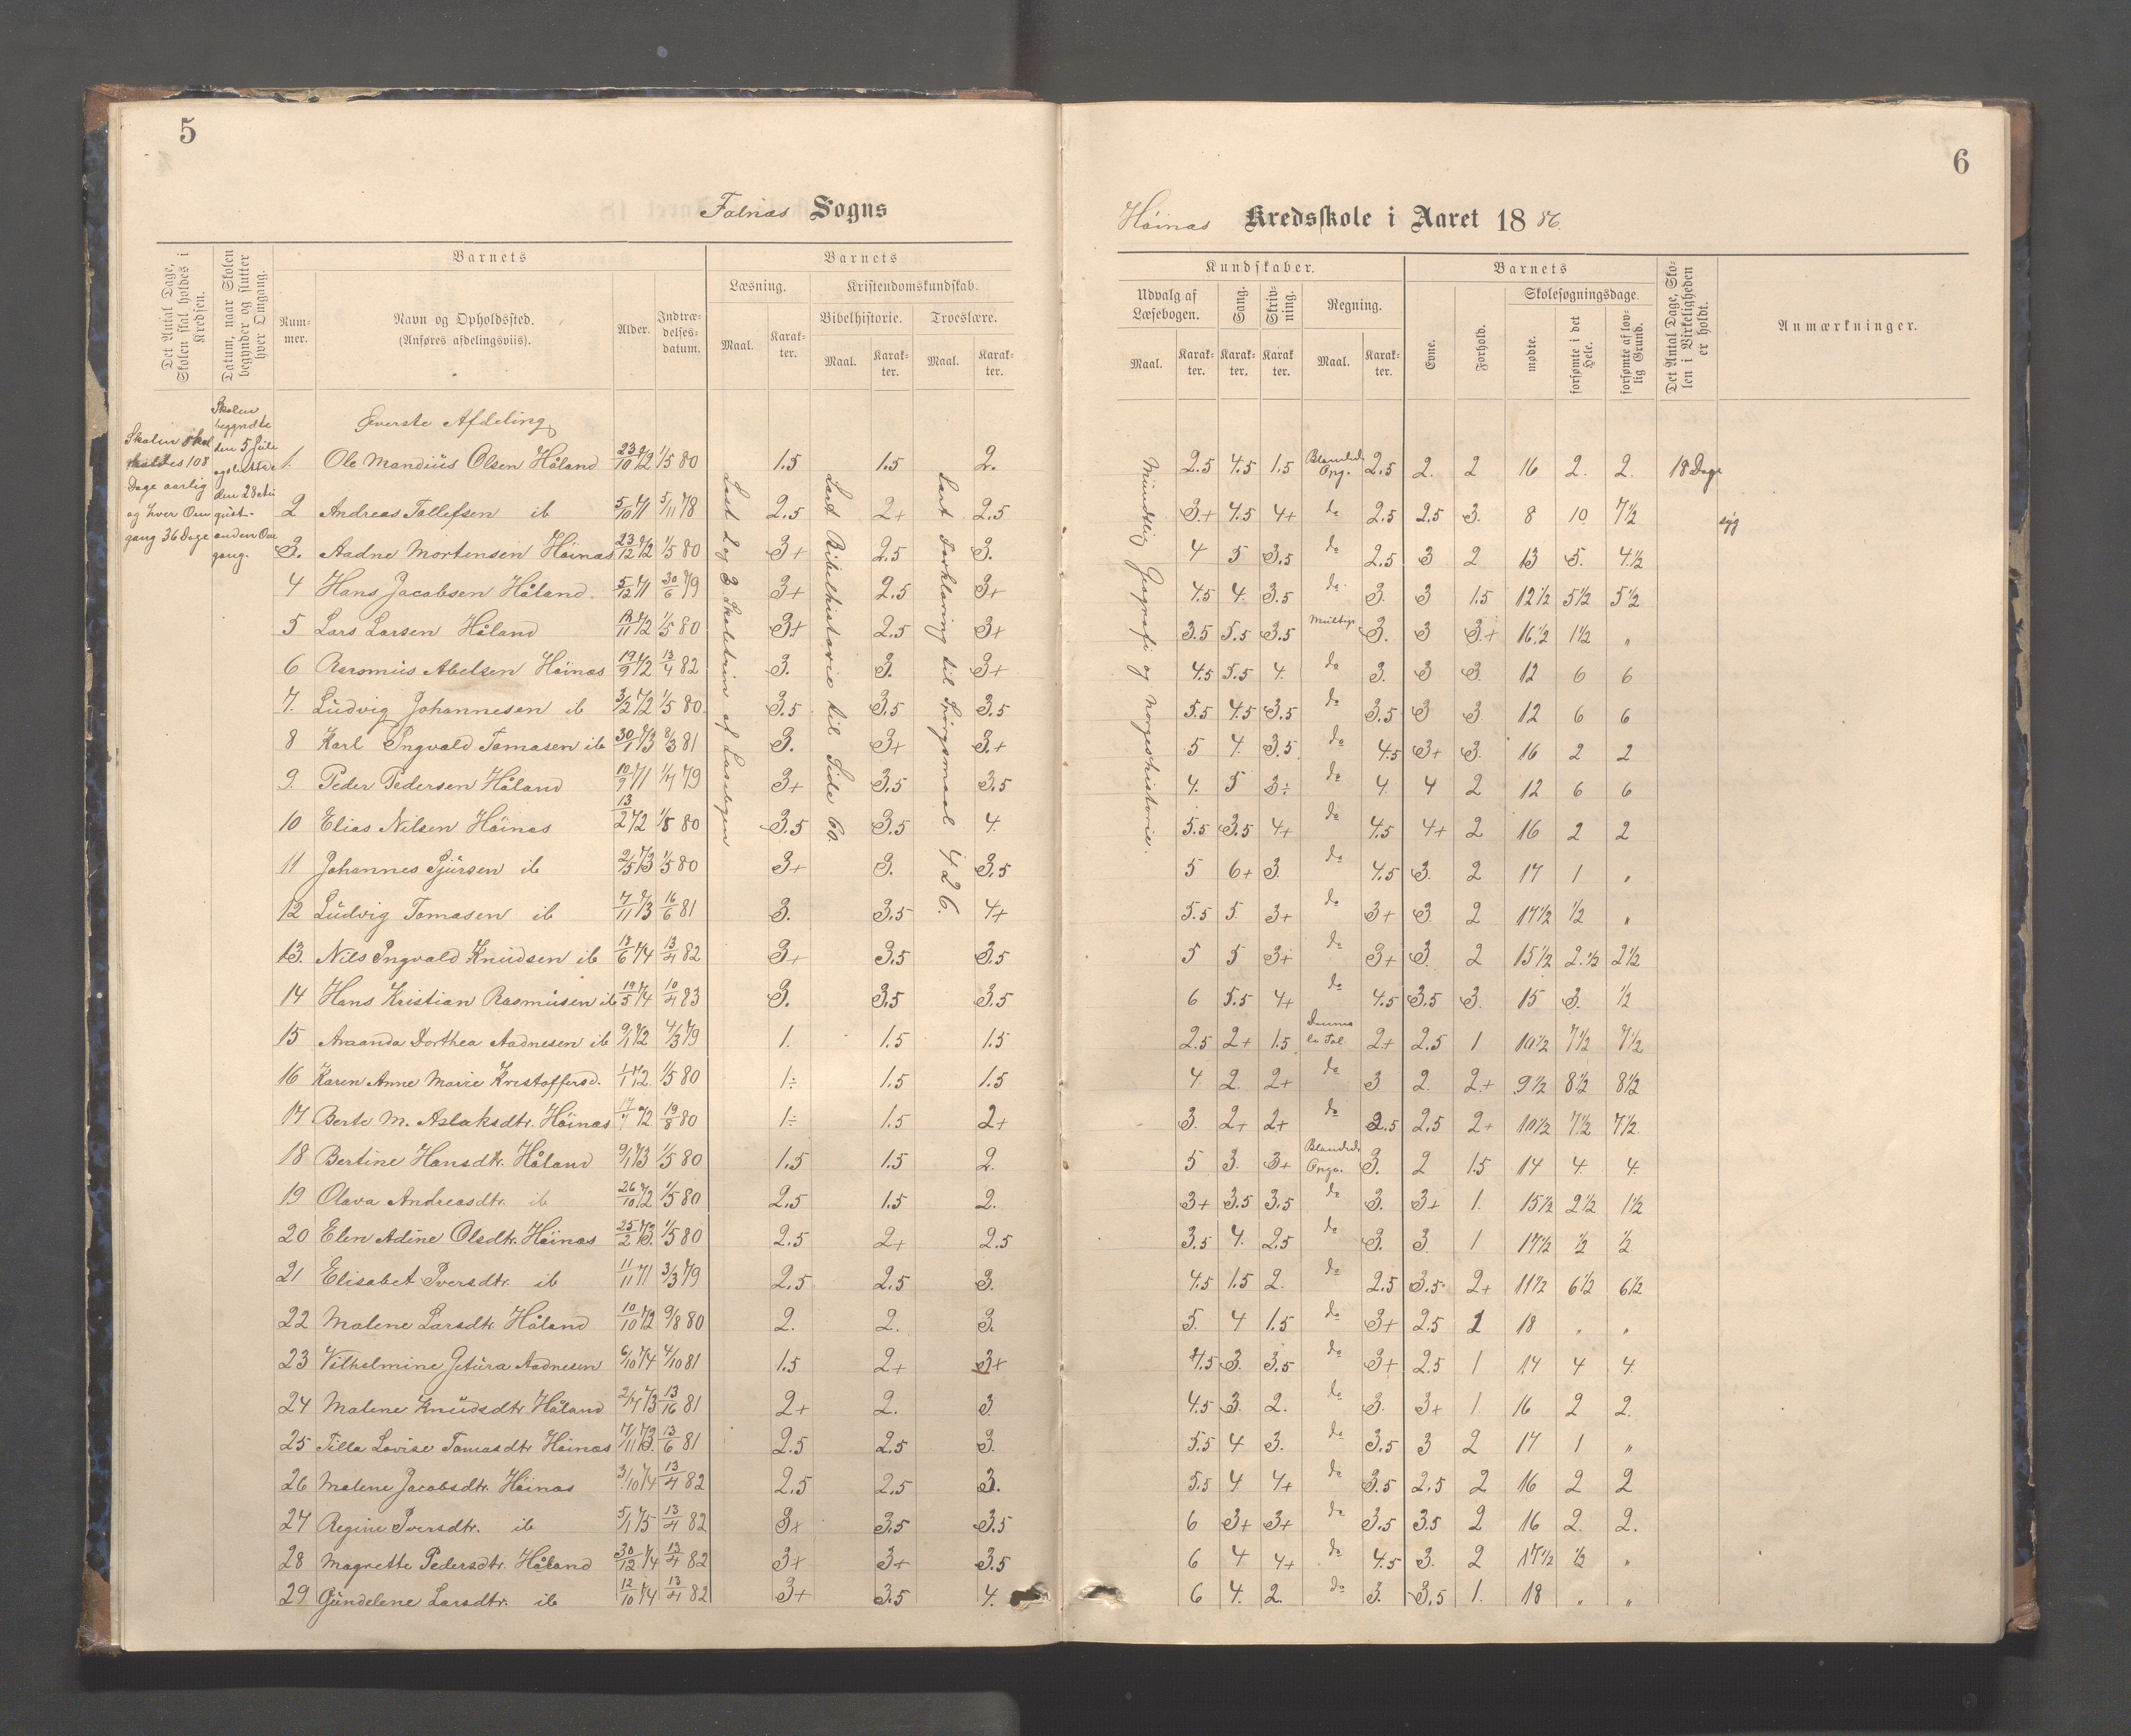 5
Falnæs Sogns
Det Antal Dage, Skolen skal holdes i Kredsen.
Datum, naar Skolen begynder og slutter hver Omgang.
Barnets
Num-mer.
Navn og Opholdssted.
(Anføres afdelingsviis).
Alder.
Indtræ-delses-datum.
Barnets
Læsning.
Kristendomskundskab.
Bibelhistorie.
Troeslære.
Maal.
Karak-ter.
Maal.
Karak-ter.
Maal.
Karak-ter.
Skolen skal holdes 108 Dage aarlig og hver Omgang 36 Dage
Skolen begyndte den 5 Juli og sluttede den 28 August anden Omgang.
Læst 2 og 3 Skoletrin af Læsebogen
Læst Bibelhistorie til Side 60.
Læst Forklaring til Spørgsmaal 426.
Øverste Afdeling
1. Ole Mandius Olsen Håland 23/10 72 1/5 80 1.5 1.5 2.
2 Andreas Tollefsen ib 5/10 71 5/11 78 2.5 2+ 2.5
3. Aadne Mortensen Höinæs 23/12 72 1/5 80 3+ 2.5 3.
4 Hans Jacobsen Håland. 5/12 71 30/6 79 3+ 2.5 3+
5 Lars Larsen Håland 72 1/5 80 3+ 2.5 3+
6 Rasmus Abelsen Höinæs 19/9 72 13/4 82 3. 3. 3+
7. Ludvig Johannesen ib 3/2 72 1/5 80. 3.5 3.5 3.5
8 Karl Ingvald Tomasen ib 30/1 73 8/3 81 3. 3+ 3.+
9. Peder Pedersen Håland 10/9 71 1/7 79 3+ 3.5 3.5
10 Elias Nilsen Höinæs 13/2 72 1/5 80 3.5 3.5 4.
11 Johannes Sjursen ib 2/5 73 1/5 80 3+ 3. 3.5
12 Ludvig Tomasen ib 7/11 73 16/6 81 3. 3.5 4+
13. Nils Ingvald Knudsen ib 13/6 74 13/4 82 3+ 3.5 3.5
14 Hans Kristian Rasmusen ib 19/5 74 10/4 83 3. 3.5 3.5
15 Amanda Dorthea Aadnesen ib 9/1 72 4/3 79 1. 1.5 1.5
16 Karen Anne Marie Kristoffersd. 72. 1/5 80 1÷ 1.5 1.5
17 Berte M. Aslaksdtr. Höinæs 17/7 72 19/8 80 1÷ 1.5 2+
18 Bertine Hansdtr. Håland 9/1 73 1/5 80 1.5 1.5 2.
19 Olava Andreasdtr. ib 26/10 72 1/5 80 2.5 1.5 2.
20 Elen Adine Olsdtr. Höinæs 25/2 73. 1/5 80 2.5 2+ 2.5
21 Elisabet Iversdtr. ib 11/11 71 3/3 79 2.5 2.5 3.
22 Malene Larsdtr. Håland 10/10 72 9/8 80 2. 2. 3.
23 Vilhelmine Getura Aadnesen 6/10 74 4/10 81 1.5 2+ 3+
24 Malene Knudsdtr Håland 2/7 73 13/16 81 2+ 2. 3
25 Tilla Lovise Tomasdtr Höinæs 7/11 73. 13/6 81 2.5 2.5 3.
26 Malene Jacobsdtr. Höinæs 3/10 74 13/4 82 2.5 2.5 3.
27 Regine Iversdtr. ib 5/1 75 13/4 82 3+ 3.5 3.5
28 Magrette Pedersdtr. Håland 30/12 74 13/4 82 3+ 3+ 3.5
29 Gundelene Larsdtr. ib 12/10 74 13/4 82 3+ 3.5 4.
6
Höinæs Kredsskole i Aaret 1886.
Kundskaber.
Udvalg af Læsebogen.
Sang.
Skriv-ning.
Regning.
Maal.
Karak-ter.
Karak-ter.
Karak ter.
Maal.
Karak-ter.
Barnets
Evne.
Forhold.
Skolesøgningsdage.
mødte.
forsømte i det Hele.
forsømte af lov-lig Grund.
Det Antal Dage, Sko-len i Virkeligheden er holdt.
Anmærkninger.
Mundtlig Geografi og Norgeshistorie.
2.5 4.5 1.5 Blanded. Opg. 2.5 2. 2 16 2. 2. 18 Dage
3.+ 4.5 4+ do 2.5 2.5 3. 8 10 7 1/2 syg
4 5 3.5 do 2.5 3 2 13 5. 4 1/2
4.5 4. 3.5 do 3. 3 1.5 12 1/2 5 1/2 5 1/2
3.5 5.5 3.5 Multipl 3. 3 3.+ 16 1/2 1 1/2 "
4.5 5.5 4. do 3. 3 3. 12 6 6
5.5 4.5 3.5 do 3.5 3 3. 12 6 6
5 4. 3.5 do 4.5 3+ 3. 16 2 2
4. 5 3÷ do 4. 4 2 12 6 6
5.5 3.5 4+ do 4.5 4+ 2 16 2 2
5 6+ 3. do 4.5 3. 2 17 1 "
5.5 5. 3+ do 3+ 3. 2 17 1/2 1/2 "
5 5 3+ do 3+ 3. 2 15 1/2 2. 1/2 2 1/2
6 5.5 4+ do 4.5 3.5 3. 15 3. 1/2
2.5 2+ 1.5 2+ 2.5 1 10 1/2 7 1/2 7 1/2
4. 2. 2+ do 3 2. 2.+ 9 1/2 8 1/2 8 1/2
3. 2+ 2+ do 2.5 2.5 2+ 10 1/2 7 1/2 7 1/2
5 3. 3+ Blanded. Opga. 3. 2 1.5 14 4. 4.
3+ 3.5 3.5 do 3. 3+ 1. 15 1/2 2 1/2 1 1/2
3.5 4. 2.5 do 3. 3. 1 17 1/2 1/2 1/2
4.5 1.5 2. do 2.5 3.5 2+ 11 1/2 6 1/2 6 1/2
5. 4 1.5 do 3+ 2.5 1 18 " "
4.5 3. 3.5 do 3+ 2.5 1 14 4 4.
4.5 3. 2. do 3. 3+ 1. 16 2 2.
5.5 4 3. do 3.5 3 2 17 1 "
5.5 4 4+ do 3.5 2.5 2 16 2 2
6 3+ 3+ do 3.5 3.5 2 16 2. 2.
6 4 4+ do 4.5 3. 2 17 1/2 1/2 "
6 4. 2. do 3. 3.5 1. 18 " "